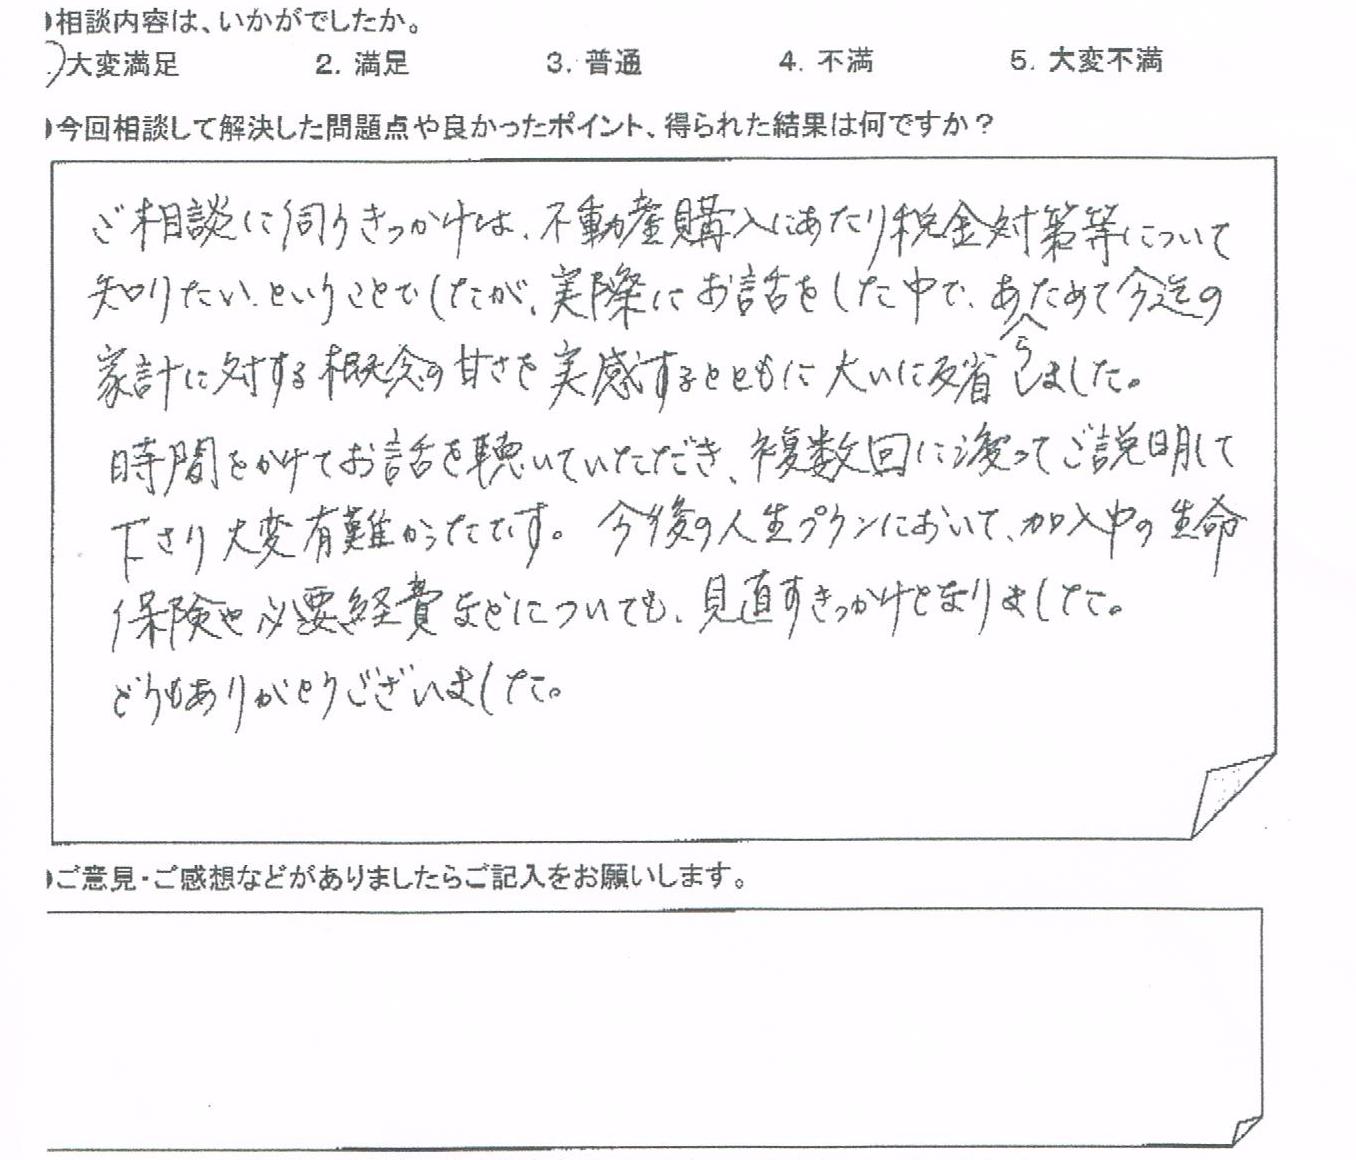 相談内容は、いかがでしたか。
大変満足 2. 満足 3. 普通 4. 不満 5. 大変不満
今回相談して解決した問題点や良かったポイント、得られた結果は何ですか？
ご相談に伺うきっかけは、不動産購入にあたり税金対策等について
知りたい、ということでしたが、実際にお話をした中で、あらためて今迄の
家計に対する概念の甘さを実感するとともに大いに反省しました。
時間をかけてお話を聴いていただき、複数回に渡ってご説明して
下さり大変有難かったです。今後の人生プランにおいて、加入中の生命
保険や必要経費などについても、見直すきっかけとなりました。
どうもありがとうございました。
ご意見・ご感想などがありましたらご記入をお願いします。